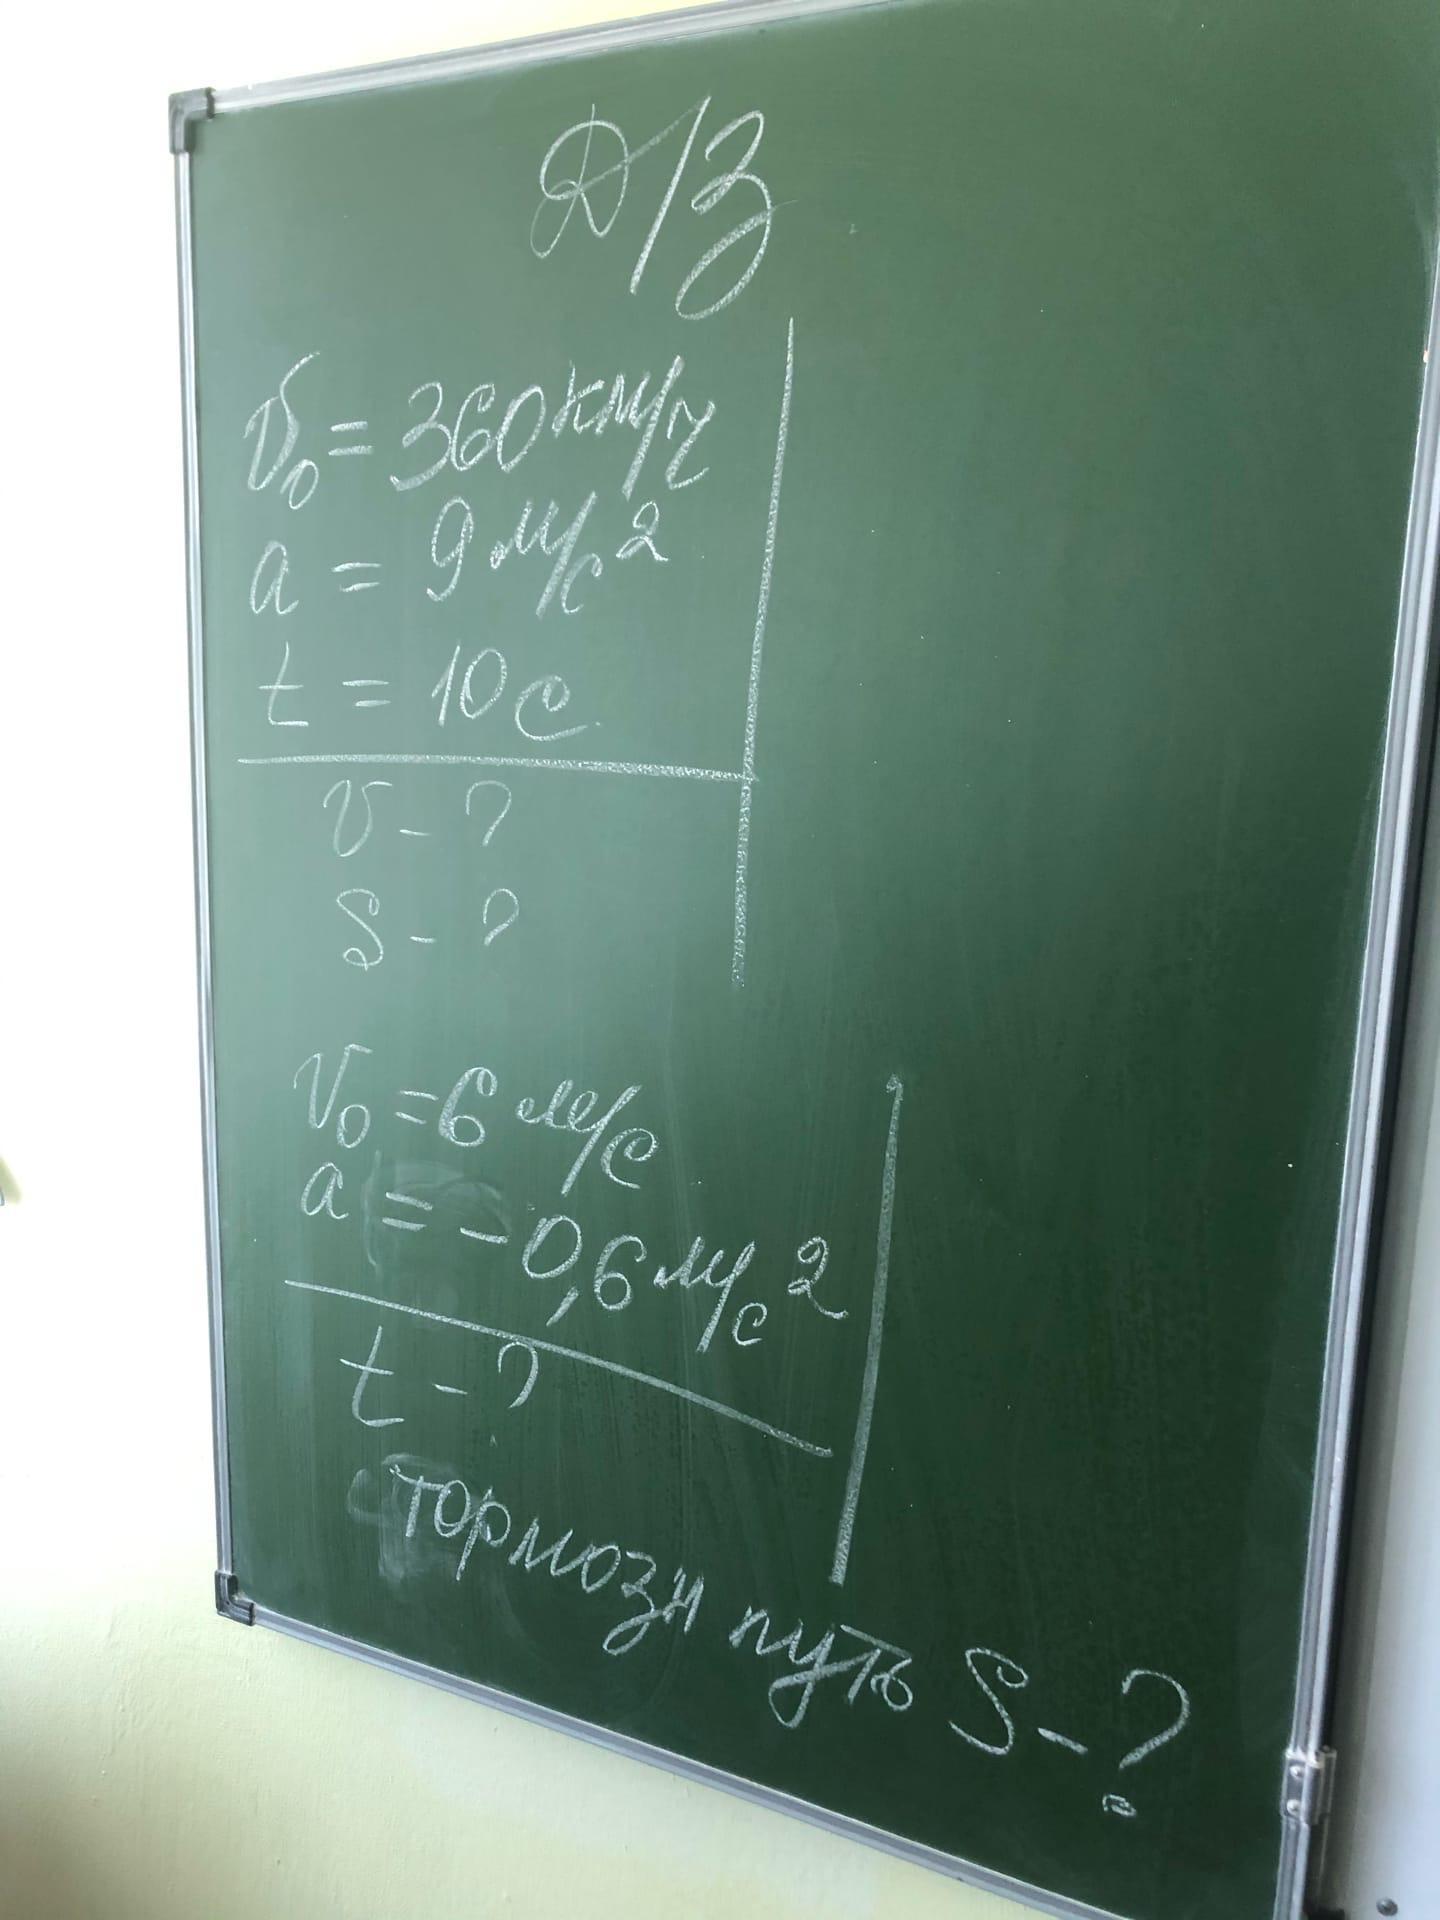 Д/З
v₀ = 360 км/ч
a = 9 м/с²
t = 10 с
v - ?
S - ?
v₀ = 6 м/с
a = -0,6 м/с²
t - ?
тормозн путь S - ?